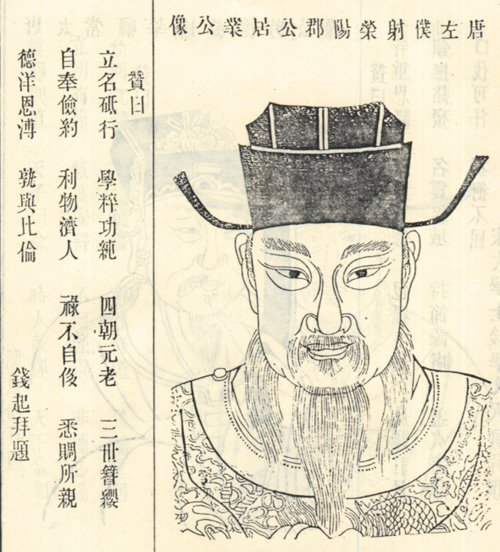 唐左僕射榮陽郡公居業公像
贊曰
立名砥行 學粹功純 四朝元老 三世簪纓
自奉儉約 利物濟人 祿不自 悉賙所親
德洋恩溥 孰與比倫
錢起拜題